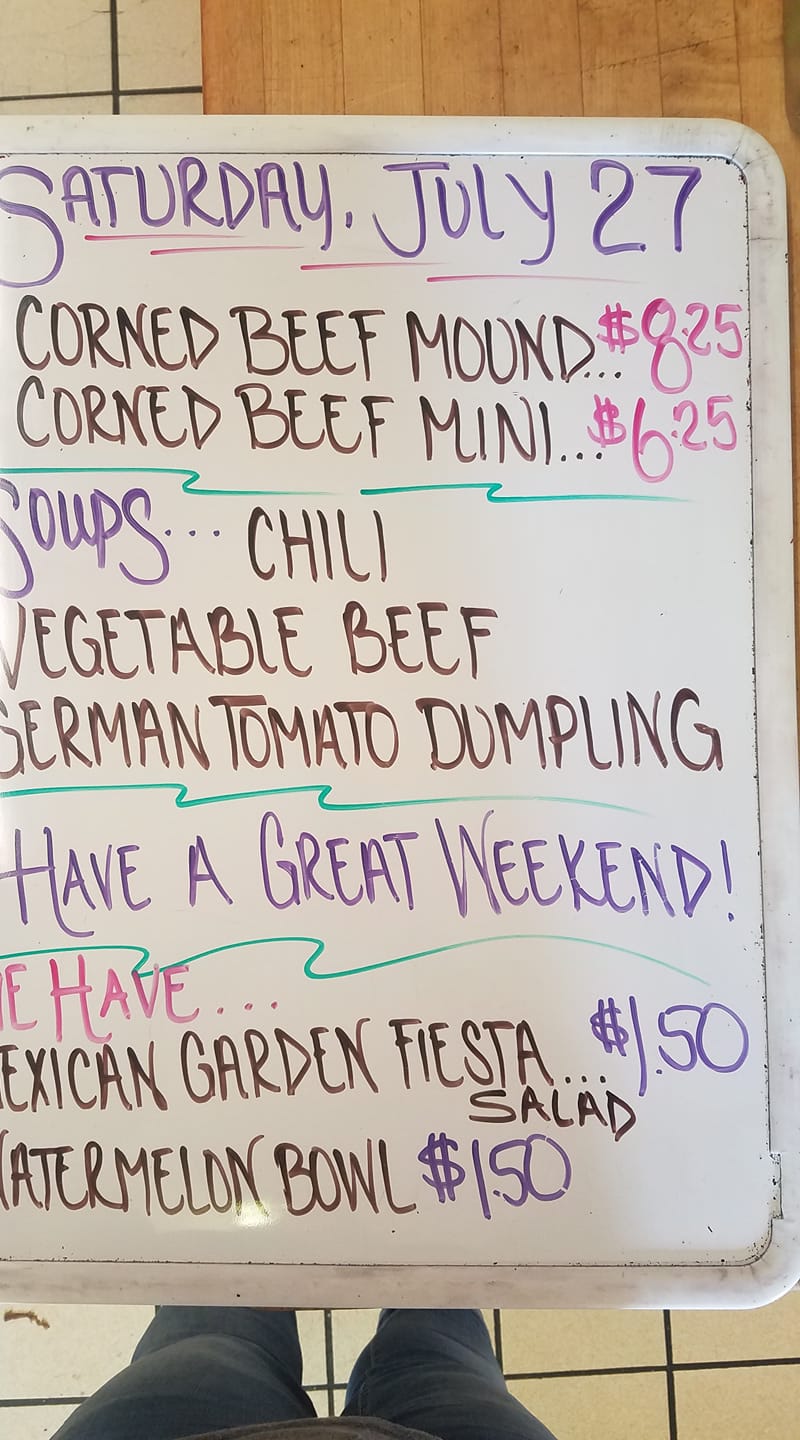 SATURDAY, JULY 27
CORNED BEEF MOUND...$8.25
CORNED BEEF MINI...$6.25
SOUPS... CHILI
VEGETABLE BEEF
GERMAN TOMATO DUMPLING
HAVE A GREAT WEEKEND!
WE HAVE...
MEXICAN GARDEN FIESTA...$1.50
SALAD
WATERMELON BOWL $1.50